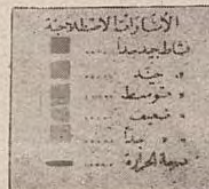 الأشارات الاصطلاحية
نشاط جيد جداً .....
» جيد .....
» متوسط .....
» ضعيف .....
» » جداً .....
درجة الحرارة .....